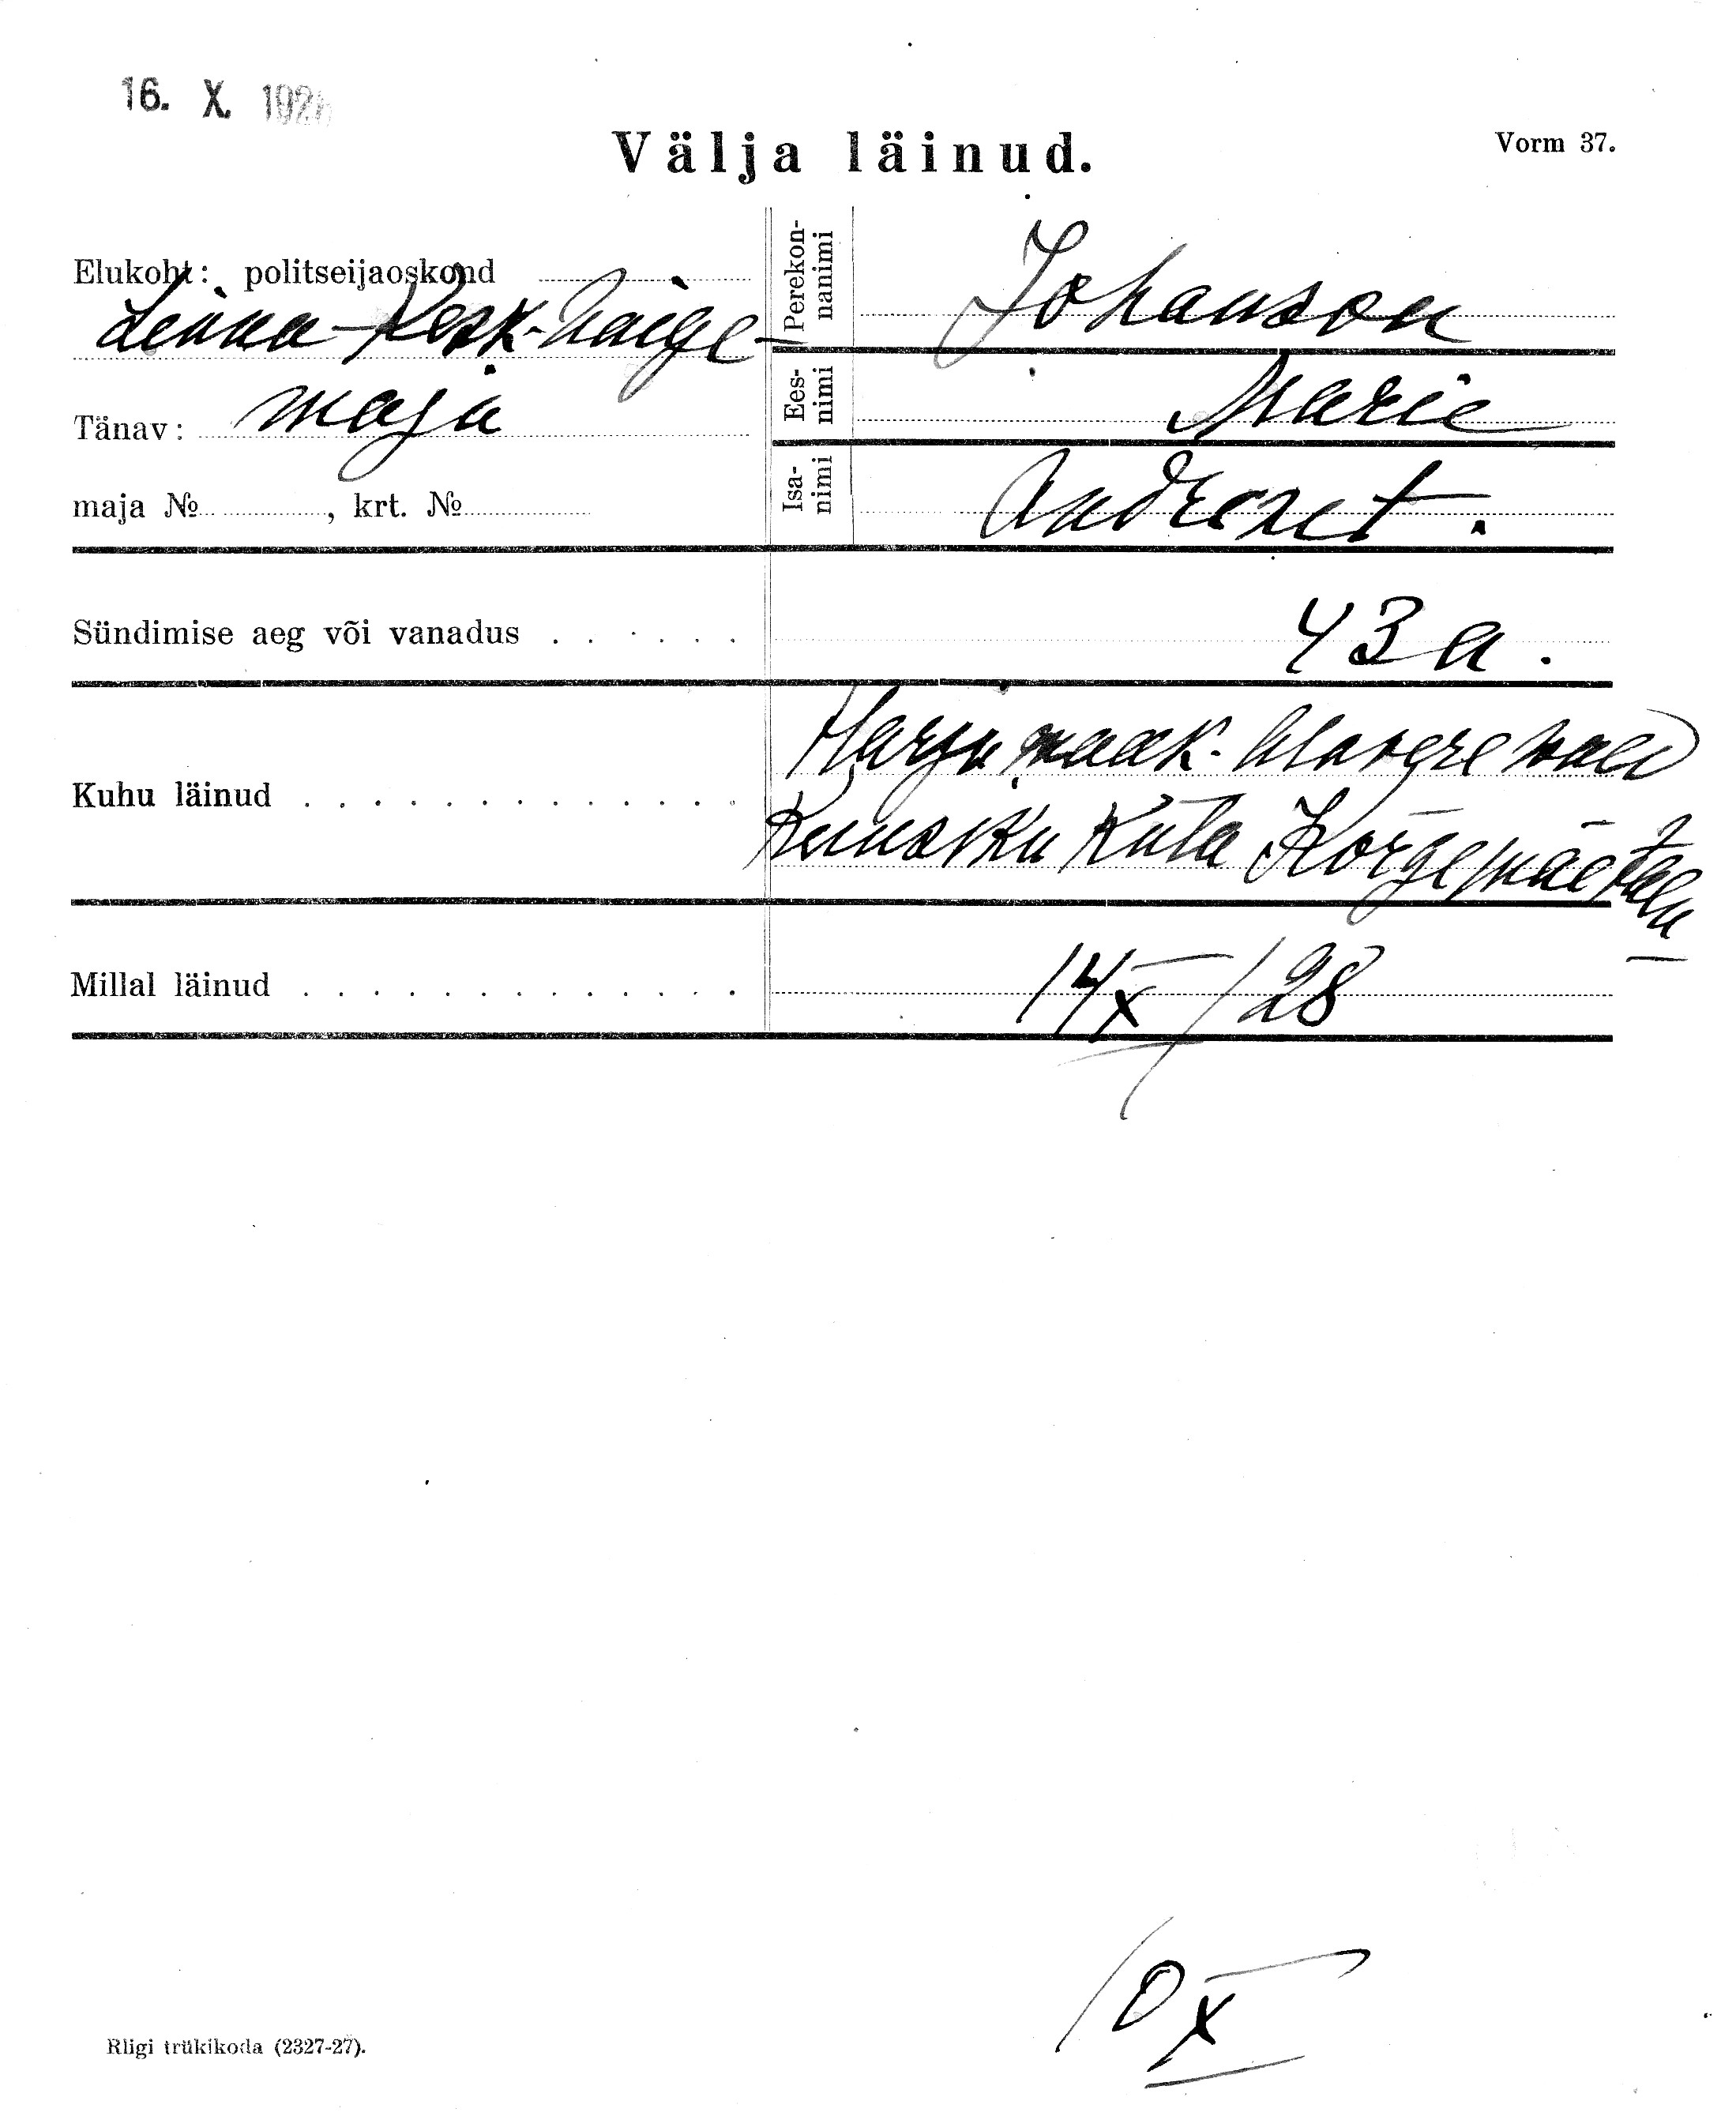 16. X. 192
Välja läinud.
Vorm 37.
Elukoht: politseijaoskond
Linna-Kesk-haige-
Tänav: maja
maja № , krt. №
Perekon-
nanimi
Johanson
Ees-
nimi
Marie
Isa-
nimi
Sündimise aeg või vanadus . . . . . .
43 a.
Kuhu läinud . . . . . . . . . . . . .
Harju maak. wald
küla Kõrgemäe talu
Millal läinud . . . . . . . . . . . . .
14 X / 28
10 X
Riigi trükikoda (2327-27).